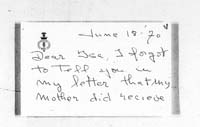 June 18 '70
Dear Isa, I forgot
to tell you in
my letter that my
Mother did recieve